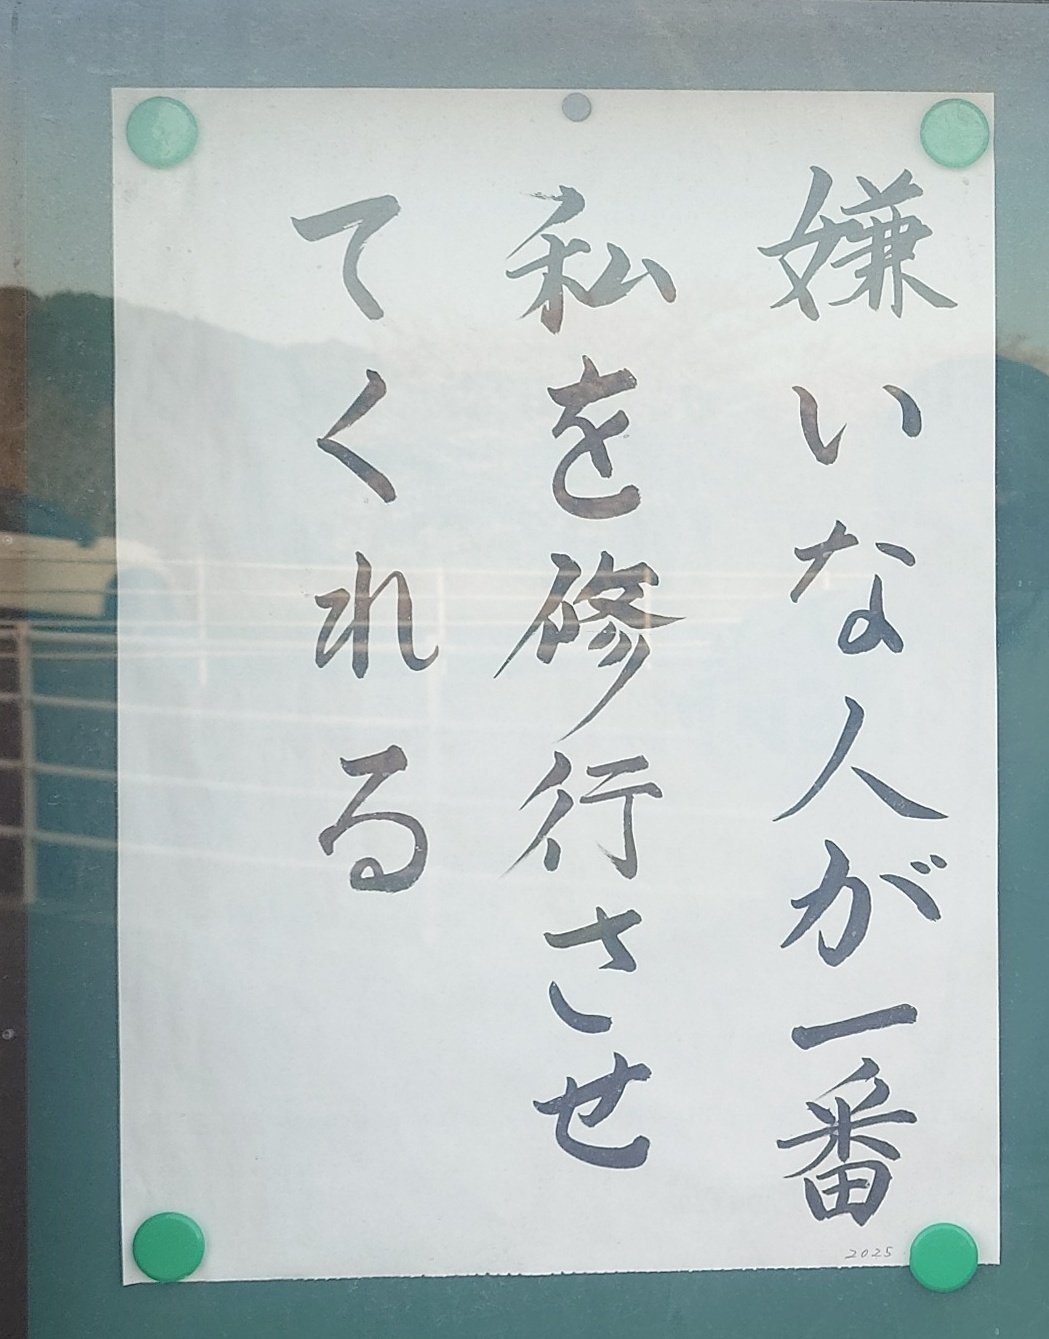 嫌いな人が一番
私を修行させ
てくれる
2025